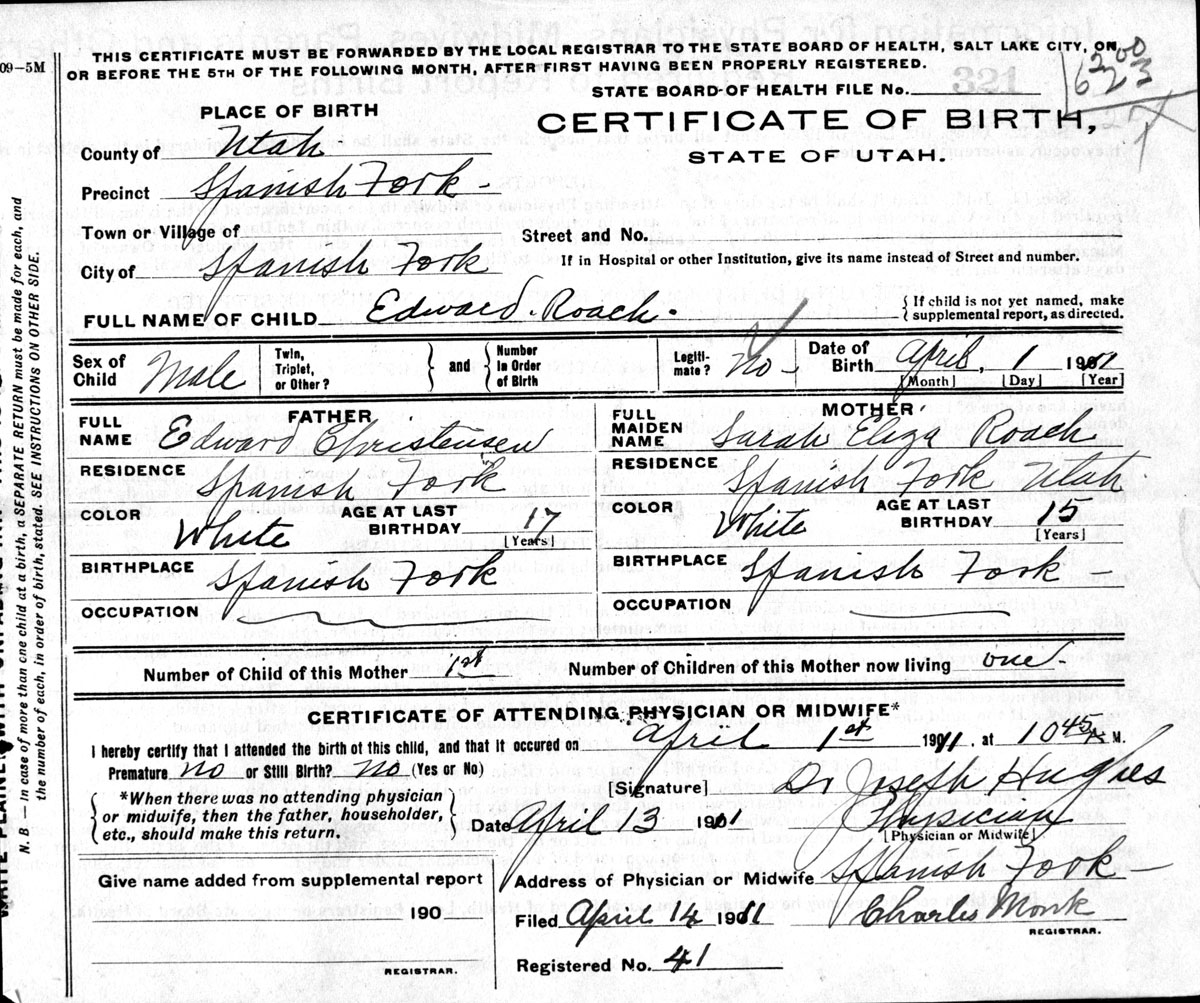 THIS CERTIFICATE MUST BE FORWARDED BY THE LOCAL REGISTRAR TO THE STATE BOARD OF HEALTH, SALT LAKE CITY, ON
OR BEFORE THE 5TH OF THE FOLLOWING MONTH, AFTER FIRST HAVING BEEN PROPERLY REGISTERED.
09-5M
321
STATE BOARD OF HEALTH FILE No.
PLACE OF BIRTH
CERTIFICATE OF BIRTH,
STATE OF UTAH.
County of Utah
Precinct Spanish Fork -
Town or Village of
Street and No.
City of Spanish Fork
If in Hospital or other Institution, give its name instead of Street and number.
FULL NAME OF CHILD Edward Roach.
{If child is not yet named, make
supplemental report, as directed.
Sex of Child Male
Twin, Triplet, or Other?
and
Number In Order of Birth
Legiti-mate? No -
Date of Birth April, 1 1911
[Month] [Day] [Year]
FATHER
FULL NAME Edward Christensen
RESIDENCE Spanish Fork
COLOR White AGE AT LAST BIRTHDAY 17
[Years]
BIRTHPLACE Spanish Fork
OCCUPATION
MOTHER
FULL MAIDEN NAME Sarah Eliza Roach
RESIDENCE Spanish Fork Utah
COLOR White AGE AT LAST BIRTHDAY 15
[Years]
BIRTHPLACE Spanish Fork -
OCCUPATION
Number of Child of this Mother 1st Number of Children of this Mother now living one -
CERTIFICATE OF ATTENDING PHYSICIAN OR MIDWIFE*
I hereby certify that I attended the birth of this child, and that it occured on April 1st 1911, at 10 45 A M.
Premature no or Still Birth? No (Yes or No)
[Signature] Dr Joseph Hughes
*When there was no attending physician
or midwife, then the father, householder,
etc., should make this return.
Date April 13 1911 Physician
[Physician or Midwife]
Give name added from supplemental report
190
REGISTRAR.
Address of Physician or Midwife Spanish Fork -
Filed April 14 1911 Charles Monk
REGISTRAR.
Registered No. 41
N. B. — in case of more than one child at a birth, a SEPARATE RETURN must be made for each, and
the number of each, in order of birth, stated. SEE INSTRUCTIONS ON OTHER SIDE.